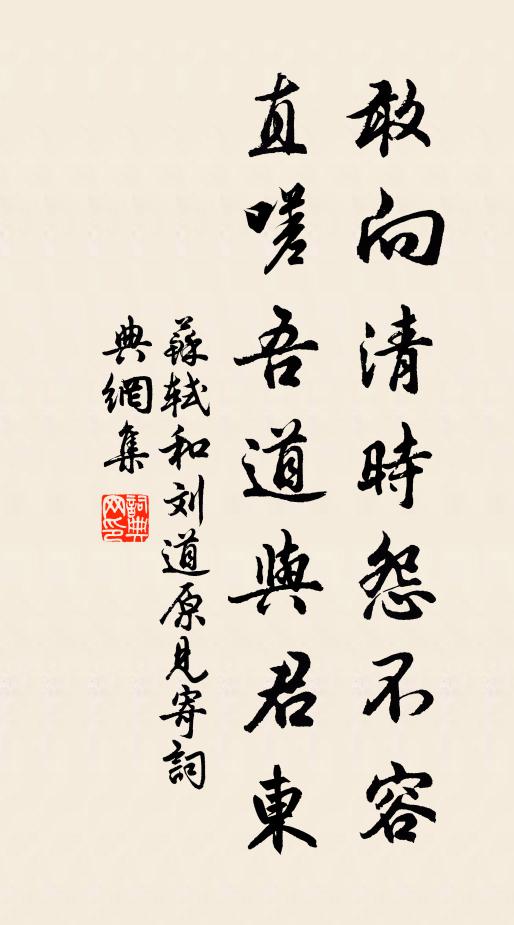 敢向清時怨不容
直嗟吾道與君東
蘇軾和刘道原見寄詞
典網集
詞典網印